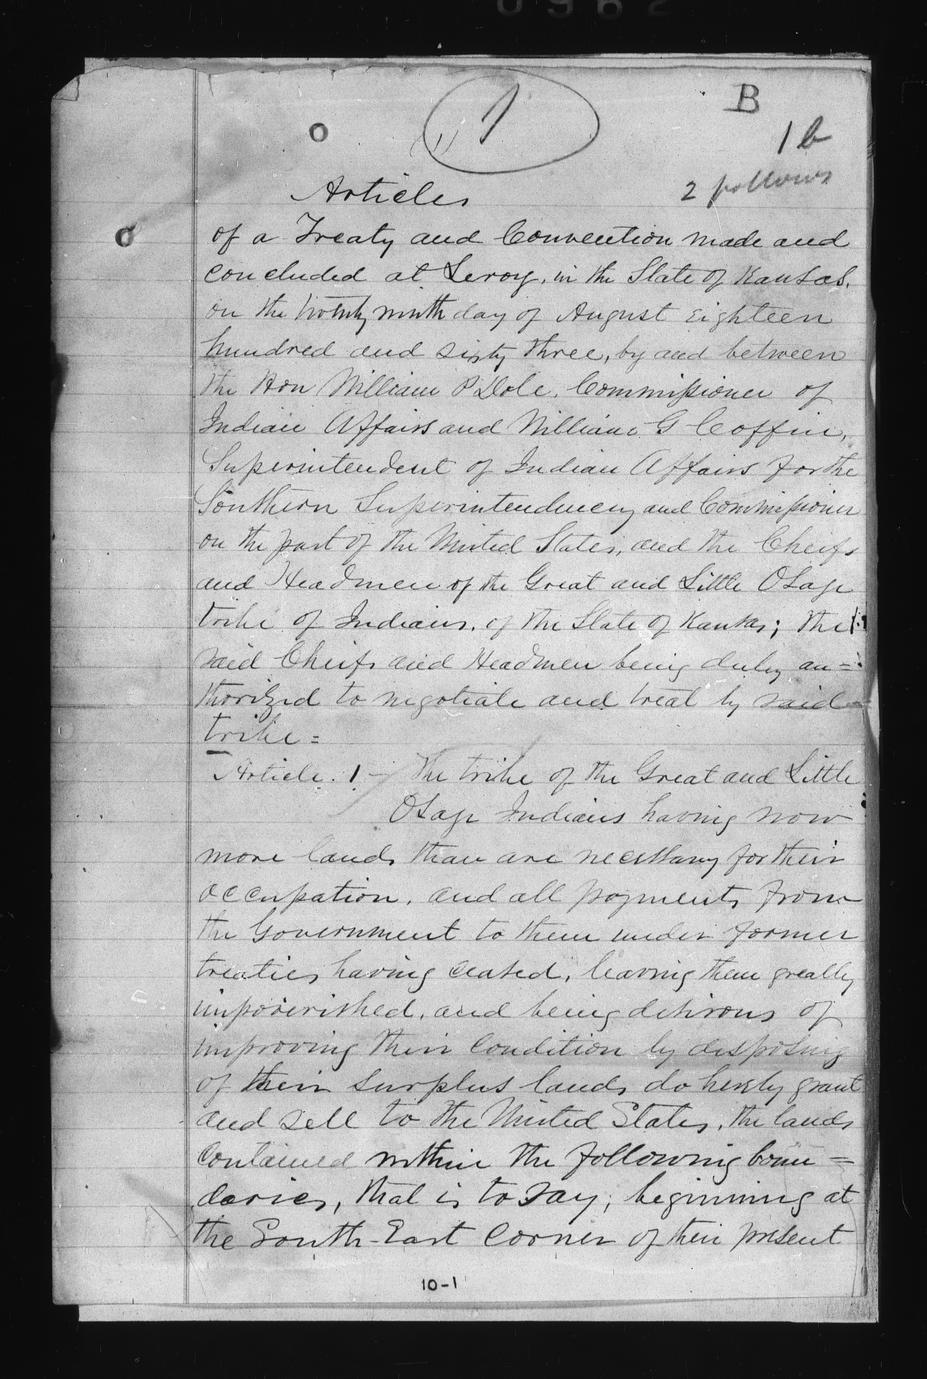 B
1
(1)
1 b
2 follows
Articles
of a Treaty and Convention made and
concluded at Leroy, in the State of Kansas,
on the twenty ninth day of August Eighteen
hundred and sixty three, by and between
the Hon William P Dole, Commissioner of
Indian Affairs and William G Coffin,
Superintendent of Indian Affairs for the
Southern Superintendency and Commissioner
on the part of the United States, and the Cheifs
and Headmen of the Great and Little Osage
tribe of Indians, of the State of Kansas; the
said Cheifs and Headmen being duley au=
thorized to negotiate and treat by said
tribe=
Article. 1 - The tribe of the Great and Little
Osage Indians having now
more lands than are necessary for their
occupation, and all payments from
the Government to them under former
treaties having ceased, leaving them greatly
impoverished, and being desirous of
improving their condition by disposing
of their surplus lands do hereby grant
and sell to the United States, the lands
contained within the following boun=
daries, that is to say; beginning at
the South-East Corner of their present
10-1